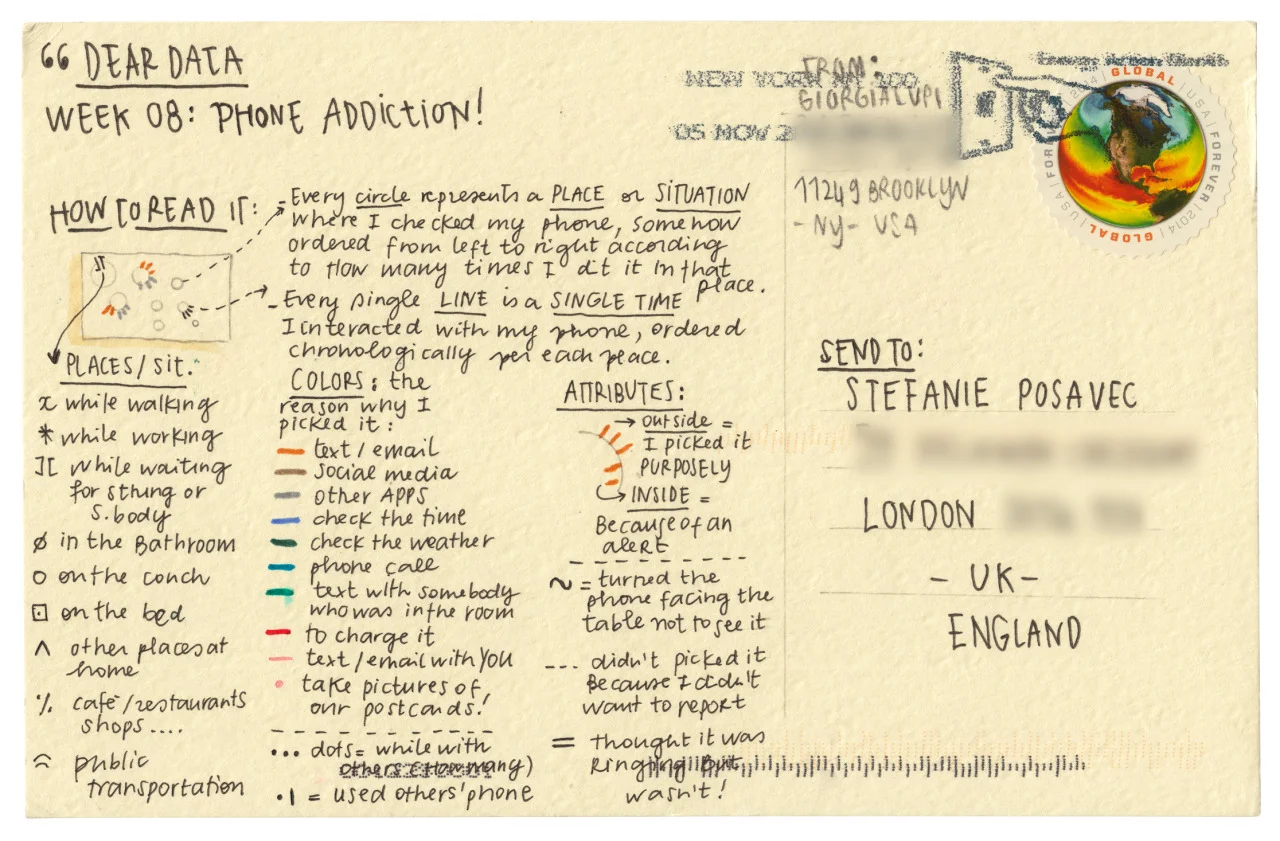 “ DEAR DATA
WEEK 08: PHONE ADDICTION!
HOW TO READ IT:
- Every circle represents a PLACE or SITUATION
where I checked my phone, somehow
ordered from left to right according
to How many times I dit it in that
place.
- Every single LINE is a SINGLE TIME
I interacted with my phone, ordered
chronologically per each peace.
PLACES/ sit.
x while walking
* while working
][ while waiting
for sthing or
s.body
ø in the Bathroom
o on the couch
⊡ on the bed
^ other places at
home
٪ cafè/restaurants
shops ....
public
transportation
COLORS: the
reason why I
picked it:
text / email
social media
other APPS
check the time
check the weather
phone call
text with somebody
who was in the room
to charge it
text / email with YOU
take pictures of
our postcards!
... dots= while with
others (How many)
.| = used others' phone
ATTRIBUTES:
→ outside =
I picked it
PURPOSELY
→ INSIDE =
Because of an
alert
~ = turned the
phone facing the
table not to see it
--- didn't picked it
Because I didn't
want to report
= thought it was
Ringing But
wasn't!
FROM:
GIORGIA LUPI
11249 BROOKLYN
- NY - USA
NEW YORK NY 100
05 NOV 2
GLOBAL | USA | FOREVER | 2014 | GLOBAL | USA | FOREVER | 2014
SEND TO:
STEFANIE POSAVEC
LONDON
- UK -
ENGLAND